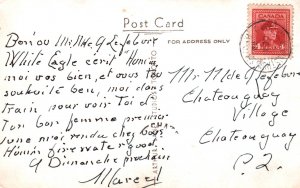 Post Card
FOR ADDRESS ONLY
CANADA
4 4
Bonjou Mr Mde G Lefebvre
White Eagle écrit "Humm
moi vas bien, et vous tou
souhaité bien, moi dans
train pour voir toi
Ton bon femme premier
une moi rendu chez vous
Humm fire water good.
A Dimanche prochain
Marcel
Mr Mde G Lefebvre
Chateauguay
Village
Chateauguay
P.Q.